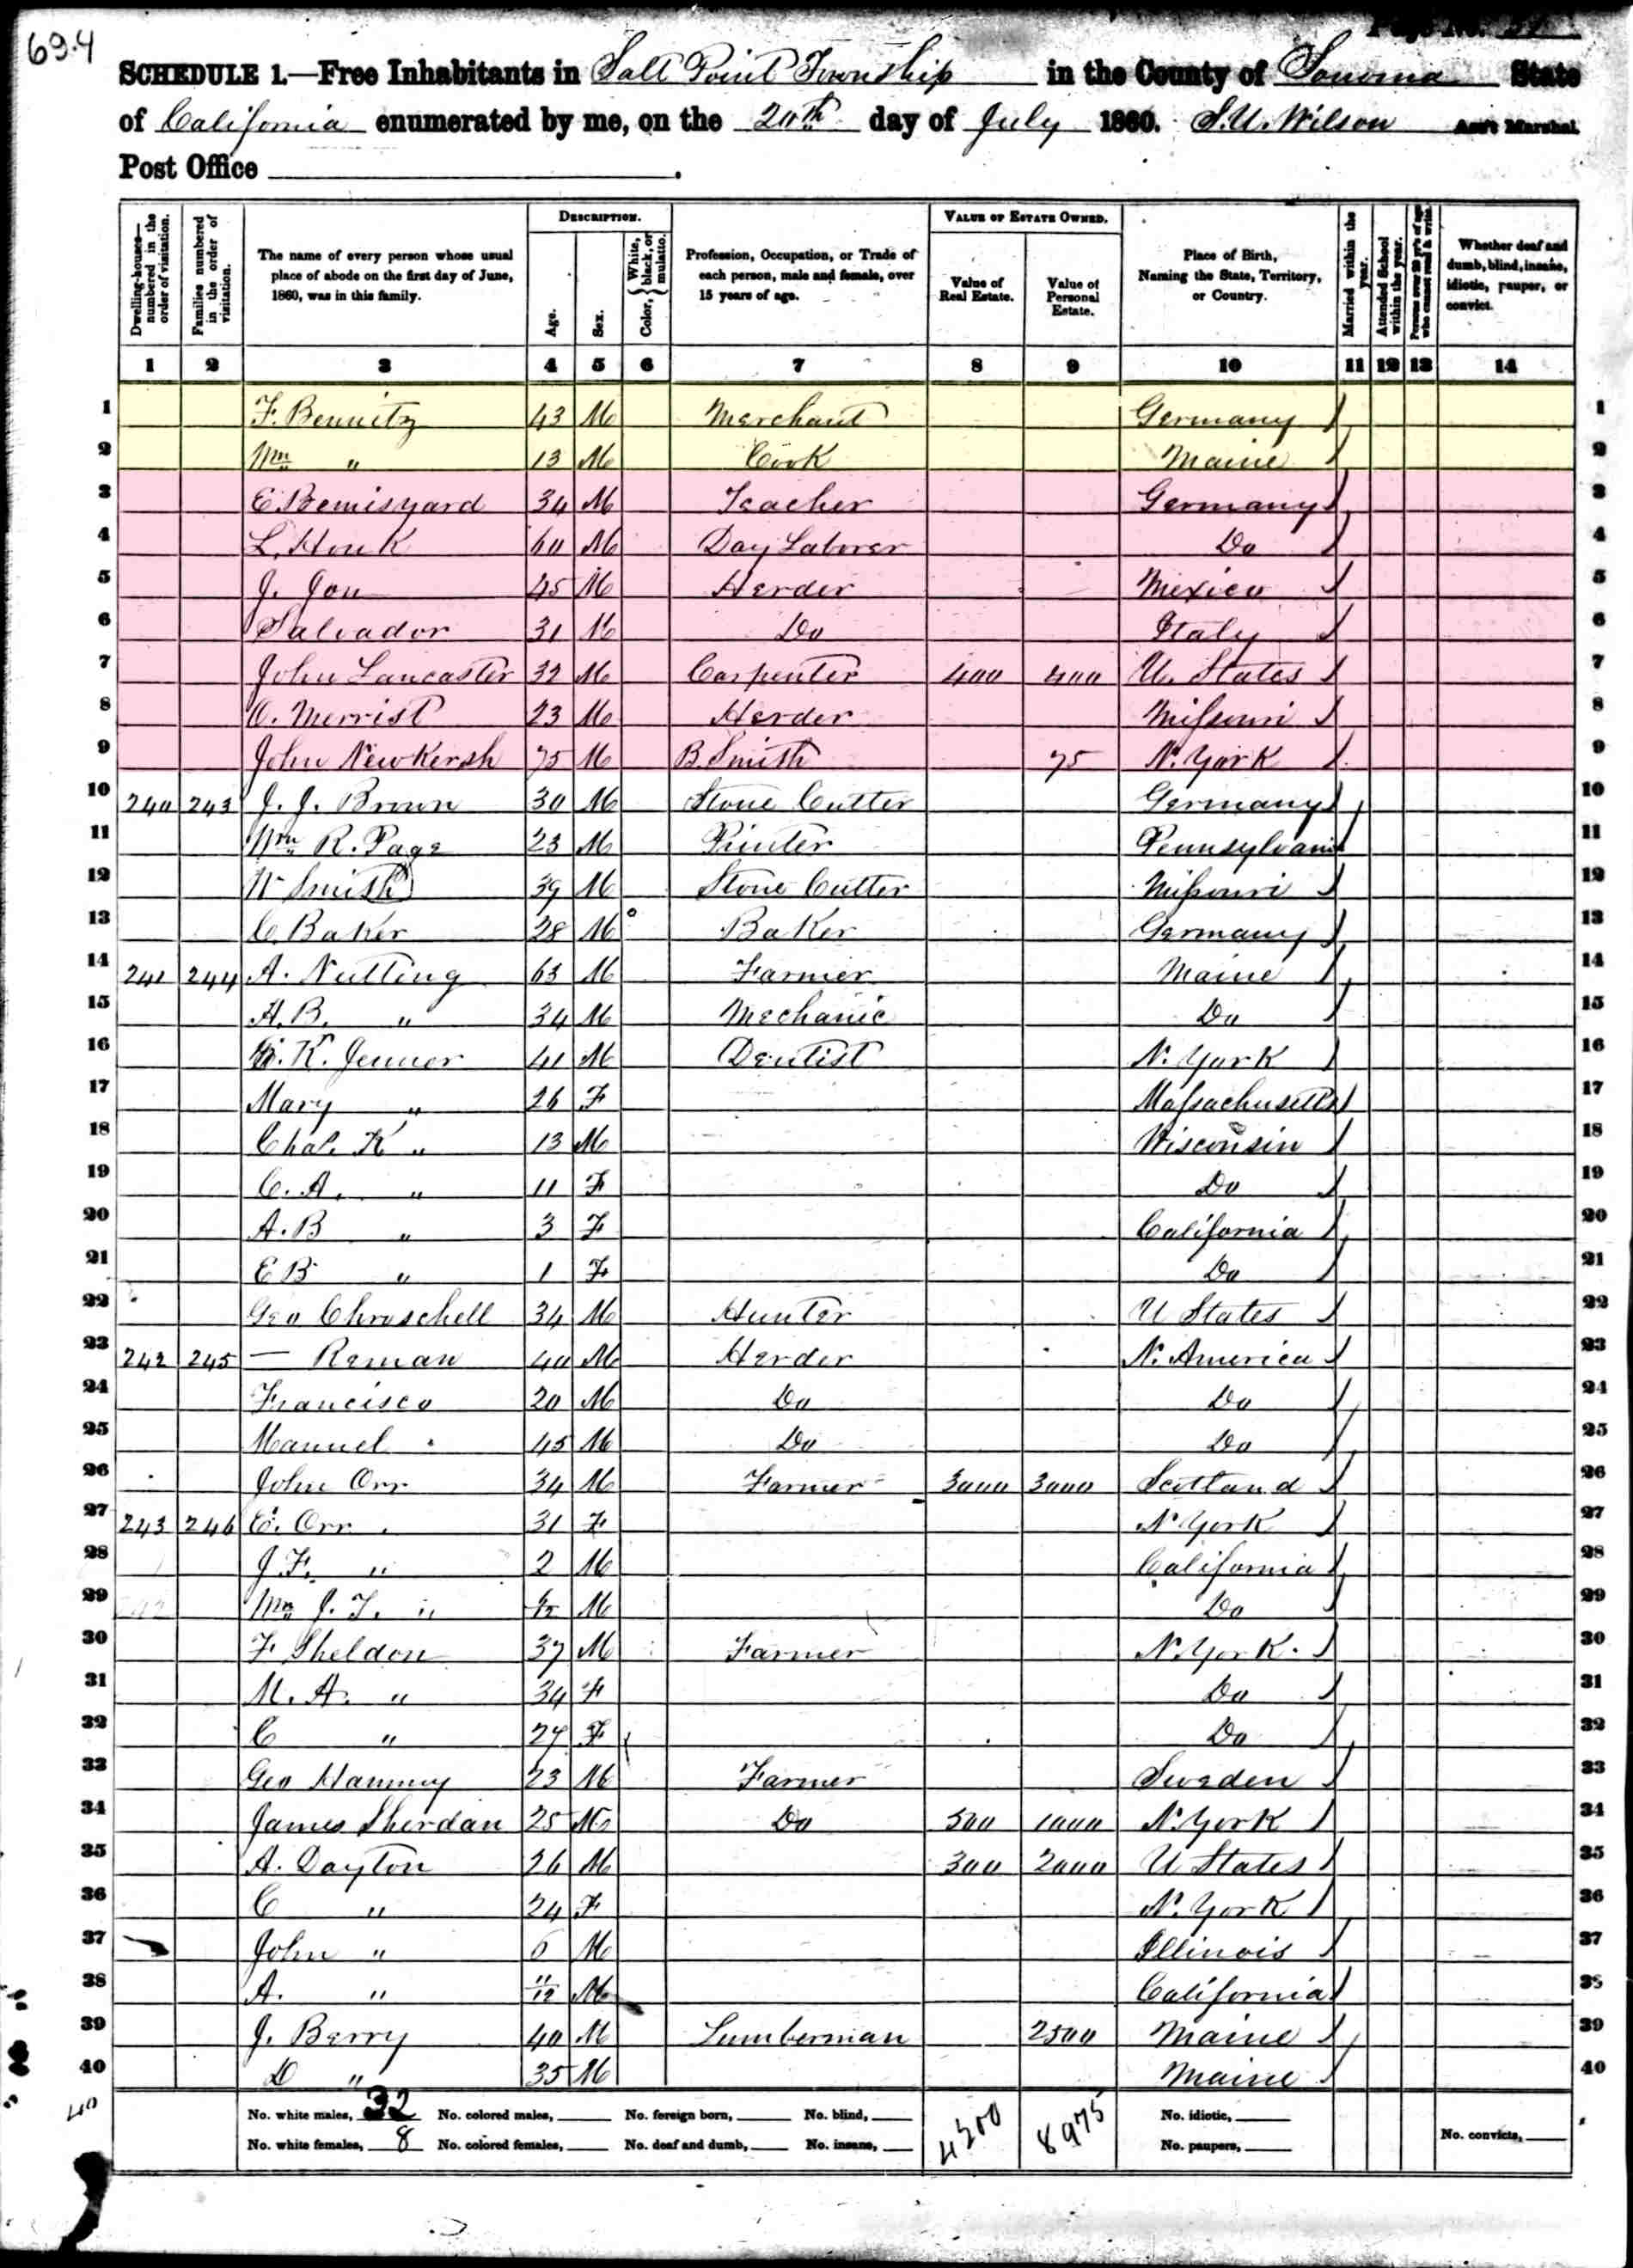 634
Page No. 31
SCHEDULE 1.—Free Inhabitants in Salt Point Township in the County of Sonoma State
of California enumerated by me, on the 20th day of July 1860. S.U. Wilson Ass't Marshal.
Post Office
Dwelling-houses—numbered in the order of visitation.
Families numbered in the order of visitation.
The name of every person whose usual place of abode on the first day of June, 1860, was in this family.
DESCRIPTION.
Age.
Sex.
Color, { White, black, or mulatto.
Profession, Occupation, or Trade of each person, male and female, over 15 years of age.
VALUE OF ESTATE OWNED.
Value of Real Estate.
Value of Personal Estate.
Place of Birth, Naming the State, Territory, or Country.
Married within the year.
Attended School within the year.
Persons over 20 y'rs of age who cannot read & write.
Whether deaf and dumb, blind, insane, idiotic, pauper, or convict.
1 2 3 4 5 6 7 8 9 10 11 12 13 14
1 F. Bennitz 43 M Merchant Germany 1
2 Wm " 13 M Cook Maine 2
3 E. Bemisyard 34 M Teacher Germany 3
4 L. Houk 60 M Day Laborer Do 4
5 J. Jon 45 M Herder Mexico 5
6 Salvador 31 M Do Italy 6
7 John Lancaster 32 M Carpenter 400 400 U. States 7
8 O. Merrist 23 M Herder Missouri 8
9 John Newkersh 75 M B. Smith 75 N. York 9
10 240 243 J. J. Brown 30 M Stone Cutter Germany 10
11 Wm R. Page 23 M Printer Pennsylvania 11
12 W Smith 39 M Stone Cutter Missouri 12
13 C. Baker 28 M Baker Germany 13
14 241 244 A. Nutting 63 M Farmer Maine 14
15 A. B. " 34 M Mechanic Do 15
16 K. Jenner 41 M Dentist N. York 16
17 Mary " 26 F Massachusetts 17
18 Chas. K " 13 M Wisconsin 18
19 C. A. " 11 F Do 19
20 A. B " 3 F California 20
21 E B " 1 F Do 21
22 Geo Chroschell 34 M Hunter U States 22
23 242 245 — Reman 40 M Herder N. America 23
24 Francisco 20 M Do Do 24
25 Manuel 45 M Do Do 25
26 John Orr 34 M Farmer 3000 3000 Scotland 26
27 243 246 E. Orr 31 F N York 27
28 J. F. " 2 M California 28
29 Wm J. T. " M Do 29
30 F Sheldon 37 M Farmer N. York 30
31 M. A. " 34 F Do 31
32 C " 27 F Do 32
33 Geo Hammy 23 M Farmer Sweden 33
34 James Sherdan 25 M Do 500 1000 N. York 34
35 A. Dayton 26 M 300 2000 U States 35
36 C " 24 F N. York 36
37 John " 6 M Illinois 37
38 A. " 11/12 M California 38
39 J. Berry 40 M Lumberman 2500 Maine 39
40 D " 35 M Maine 40
40 No. white males, 32 No. colored males, No. foreign born, No. blind, 4200 8975 No. idiotic,
No. white females, 8 No. colored females, No. deaf and dumb, No. insane, No. paupers, No. convicts,